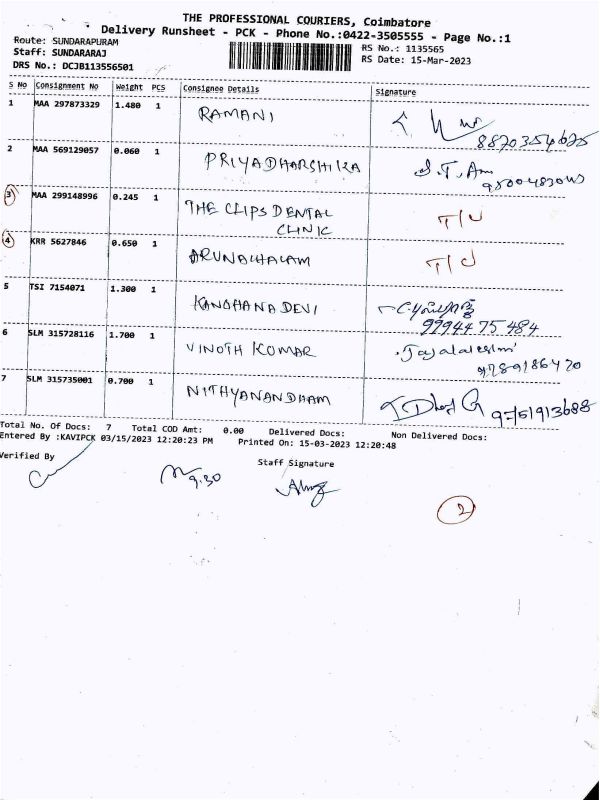 THE PROFESSIONAL COURIERS, Coimbatore
Delivery Runsheet - PCK - Phone No.:0422-3505555 - Page No.:1
Route: SUNDARAPURAM
Staff: SUNDARARAJ
DRS No.: DCJB113556501
RS No.: 1135565
RS Date: 15-Mar-2023
S No Consignment No Weight PCS Consignee Details Signature
1 MAA 297873329 1.480 1 RAMANI
2 MAA 569129057 0.060 1 PRIYADHARSHIKA
3 MAA 299148996 0.245 1 THE CLIPS DENTAL
CLINIC
4 KRR 5627846 0.650 1 ARUNACHALAM
5 TSI 7154071 1.300 1 KANCHANA DEVI
99944 75 484
6 SLM 315728116 1.700 1 VINOTH KUMAR
9789186420
7 SLM 315735001 0.700 1 NITHYANANDHAM
Total No. Of Docs: 7 Total COD Amt: 0.00 Delivered Docs: Non Delivered Docs:
Entered By :KAVIPCK 03/15/2023 12:20:23 PM Printed On: 15-03-2023 12:20:48
Verified By
Staff Signature
9.30
2